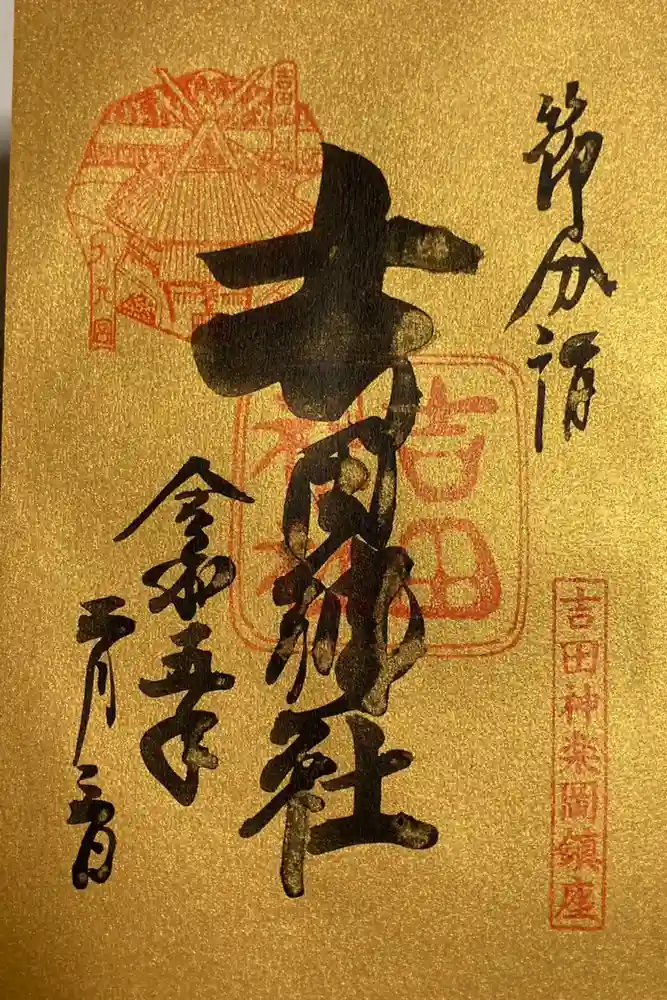 節分詣
吉田神社
令和五年
二月三日
吉田神社
吉田神楽岡鎮座
吉田